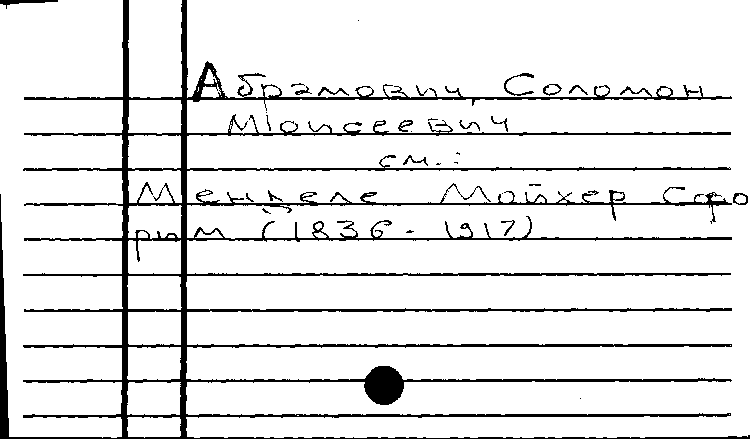 Абрамович, Соломон
Моисеевич
см.:
Менделе Мойхер Сфо
рим (1836 - 1917)